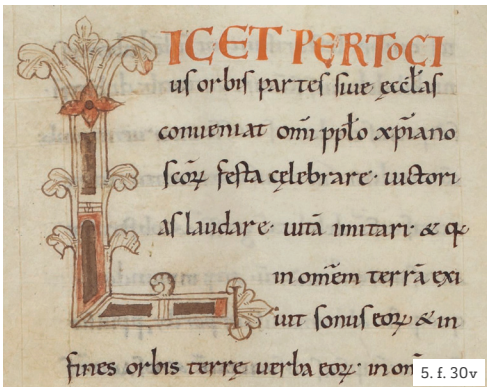 LICET PER TOCI
us orbis partes siue ęcclas
conueniat omi pplo xpiano
scoꝝ festa cęlebrare· uictori
as laudare· uitā imitari· & qꝛ
in omēm terrā exi
uit sonus eoꝝ & in
fines orbis terrę uerba eoꝝ· in om
5. f. 30v